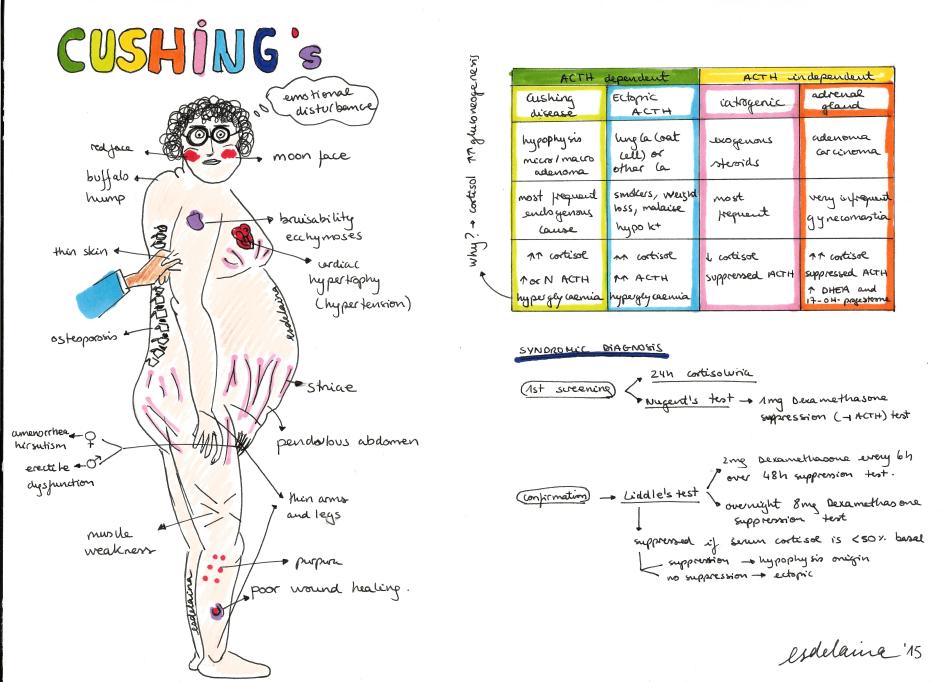 CUSHING's
emotional
disturbance
red face
moon face
buffalo
hump
bruisability
ecchymoses
thin skin
cardiac
hypertrophy
(hypertension)
esdelaina
osteoporosis
striae
amenorrhea
hirsutism
♀
erectile
dysfunction
♂
pendulous abdomen
thin arms
and legs
muscle
weakness
purpura
poor wound healing.
esdelaina
why? → cortisol ↑↑ gluconeogenesis
ACTH dependent
ACTH independent
Cushing
disease
Ectopic
ACTH
iatrogenic
adrenal
gland
hypophysis
micro/macro
adenoma
lung Ca (oat
cell) or
other Ca
exogenous
steroids
adenoma
carcinoma
most frequent
endogenous
cause
smokers, weight
loss, malaise
hypo K+
most
frequent
very infrequent
gynecomastia
↑↑ cortisol
↑ or N ACTH
hyperglycaemia
↑↑ cortisol
↑↑ ACTH
hyperglycaemia
↓ cortisol
suppressed ACTH
↑↑ cortisol
suppressed ACTH
↑ DHEA and
17-OH-progesterone
SYNDROMIC DIAGNOSIS
1st screening
24h cortisoluria
Nugent's test → 1mg Dexamethasone
suppression (⊣ ACTH) test
confirmation → Liddle's test
2mg Dexamethasone every 6h
over 48h suppression test.
overnight 8mg Dexamethasone
suppression test
suppressed if serum cortisol is <50% basal
suppression → hypophysis origin
no suppression → ectopic
esdelaina '15